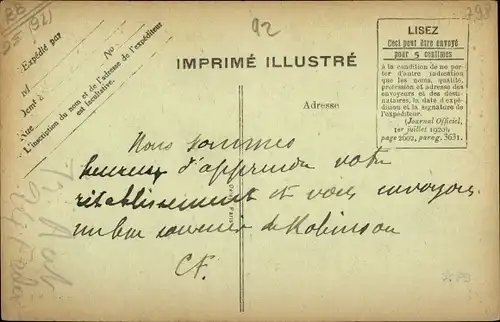 92
IMPRIMÉ ILLUSTRÉ
Adresse
LISEZ
Ceci peut être envoyé
pour 5 centimes
à la condition de ne por-
ter d'autre indication
que les noms, qualité,
profession et adresse des
envoyeurs et des desti-
nataires, la date d'expé-
dition et la signature de
l'expéditeur.
(Journal Officiel,
1er juillet 1920,
page 2662, parag. 3631.
Expédié par
N°
Rue
L'inscription du nom et de l'adresse de l'expéditeur
est facultative.
(92)
Nous sommes
heureux d'apprendre votre
rétablissement et vous envoyons
un bon souvenir de Robinson
C.F.